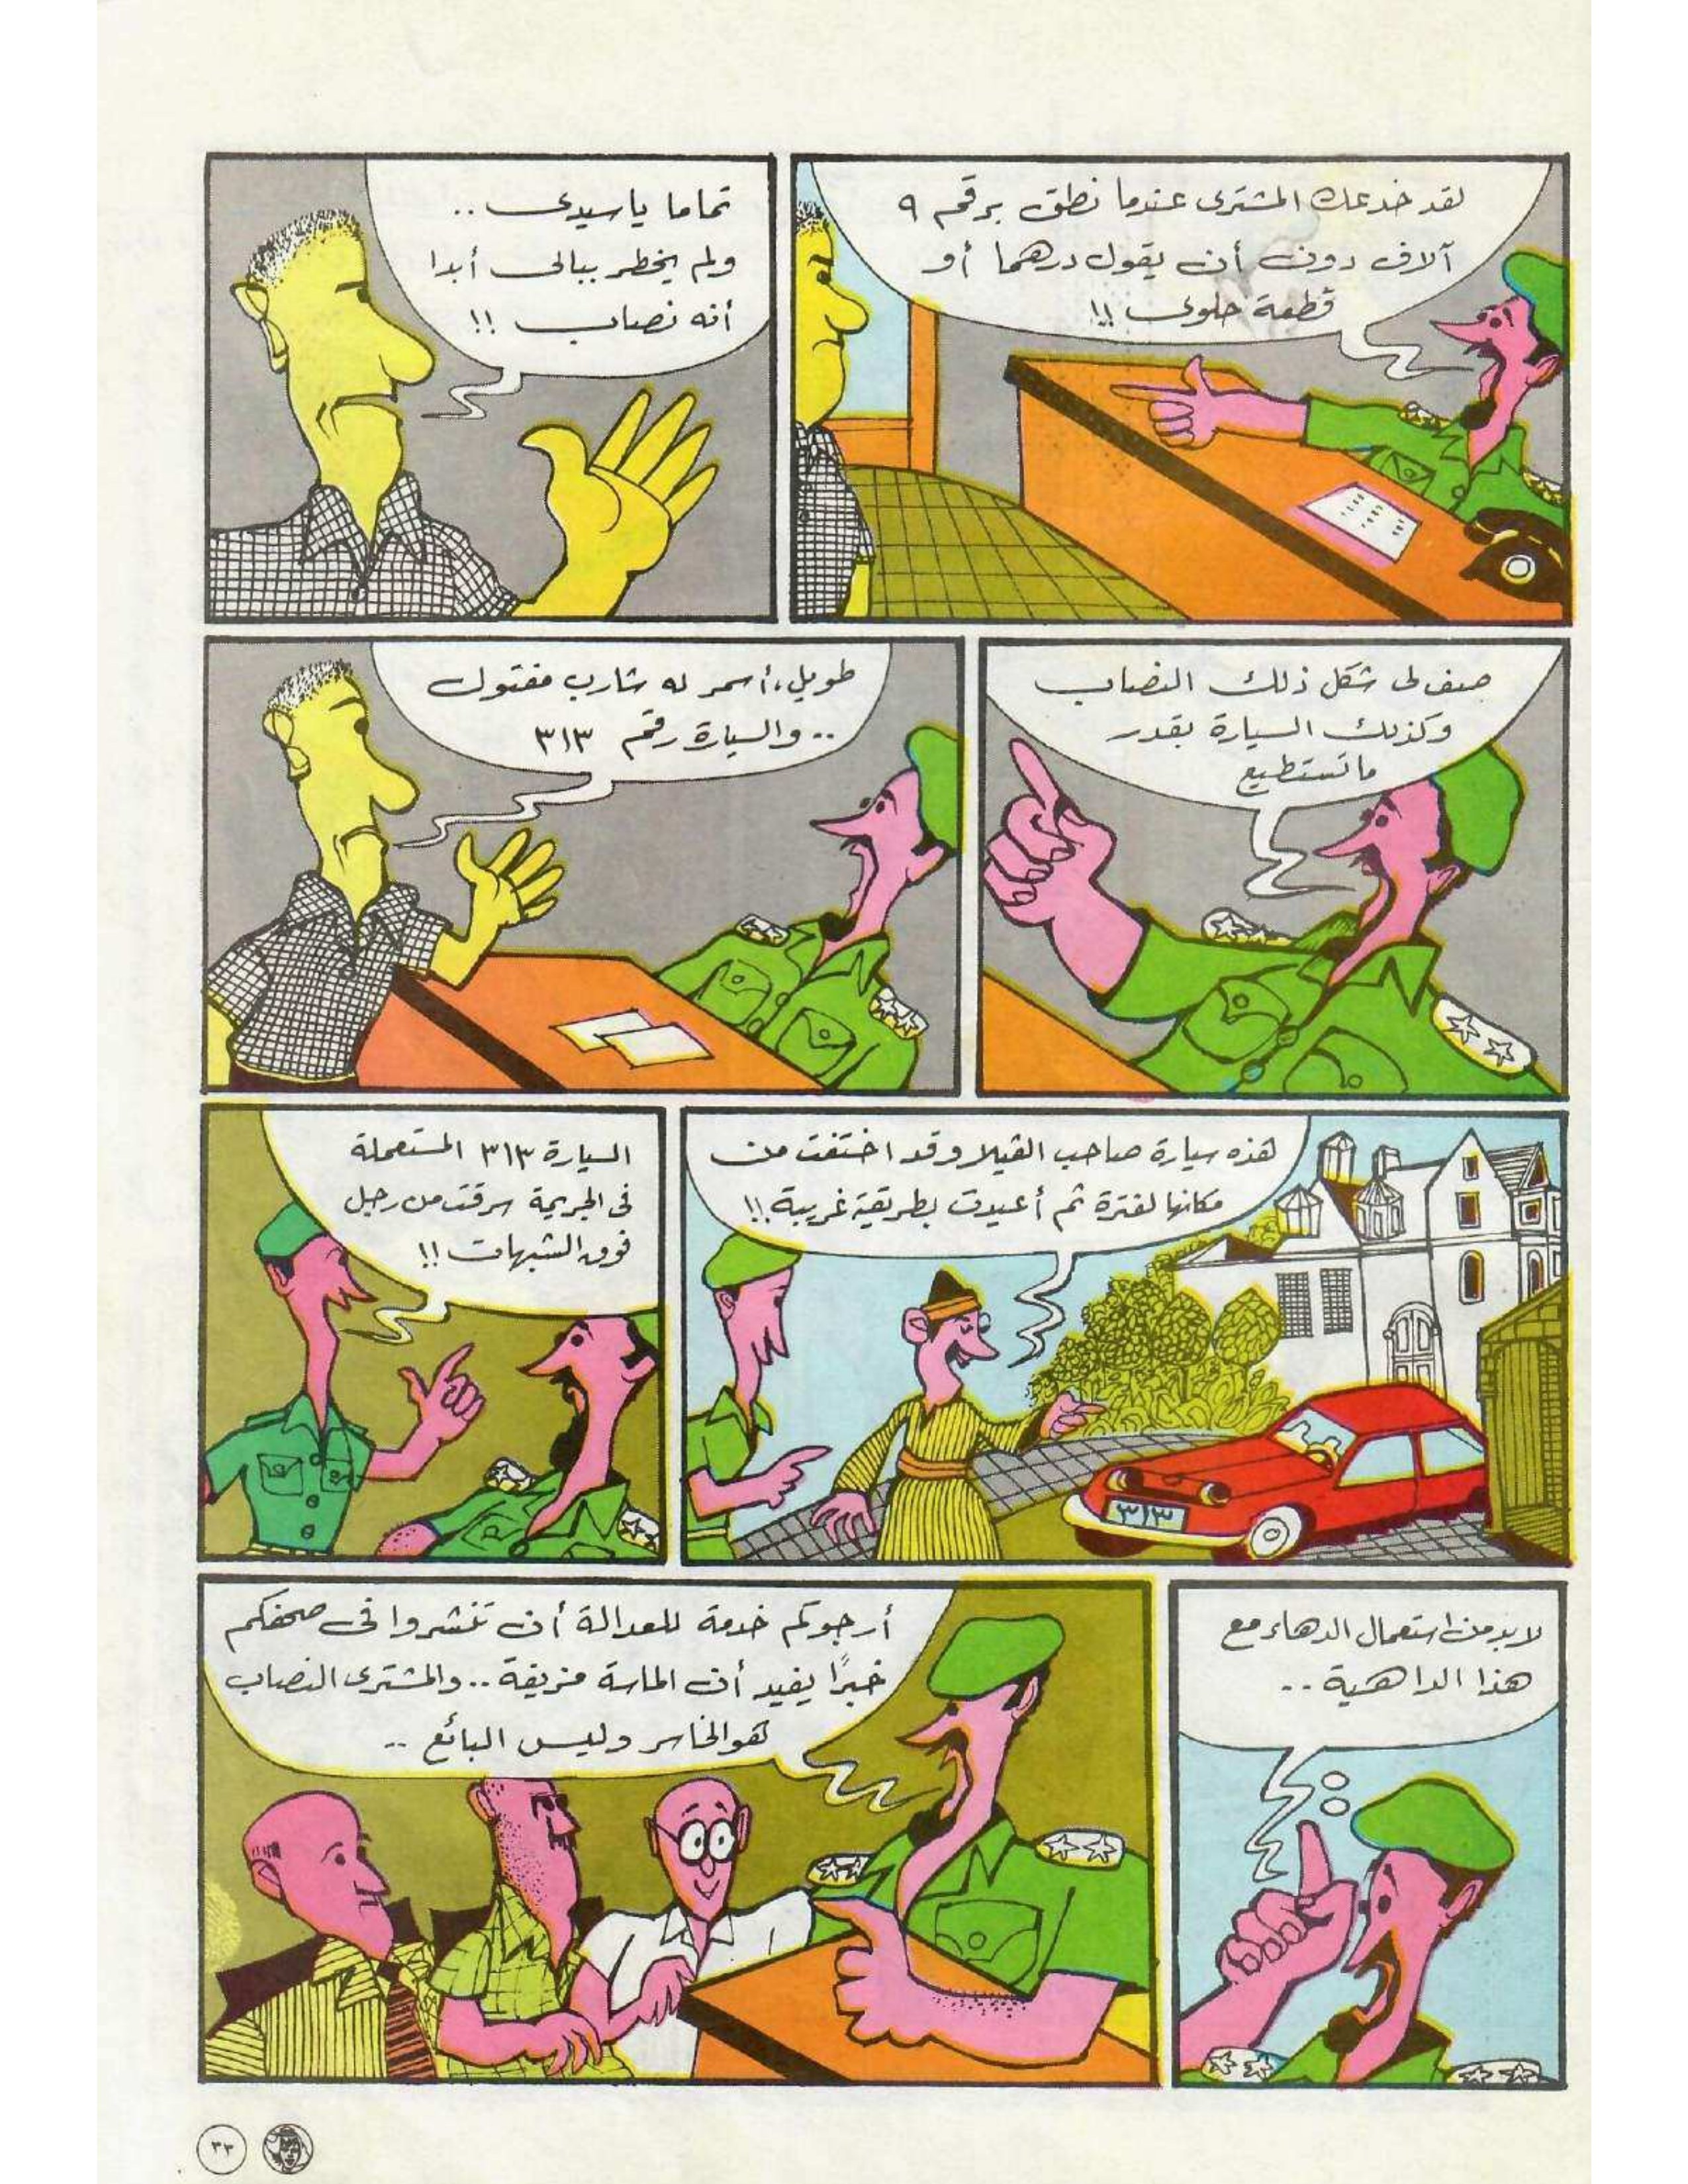 لقد خدعك المشترى عندما نطق برقم ٩
آلاف دون أن يقول درهما أو
قطعة حلوى !!
تماما ياسيدى ..
ولم يخطر ببالى أبدا
أنه نصاب !!
صف لى شكل ذلك النصاب
وكذلك السيارة بقدر
ماتستطيع
طويل، أسمر له شارب مفتول
.. والسيارة رقم ٣١٣
هذه سيارة صاحب الڤيلا وقد اختفت من
مكانها لفترة ثم أعيدت بطريقة غريبة !!
٣١٣
السيارة ٣١٣ المستعملة
فى الجريمة سرقت من رجل
فوق الشبهات !!
لابد من استعمال الدهاء مع
هذا الداهية ..
أرجوكم خدمة للعدالة أن تنشروا فى صحفكم
خبرًا يفيد أن الماسة مزيفة .. والمشترى النصاب
هو الخاسر وليس البائع ..
٣٣